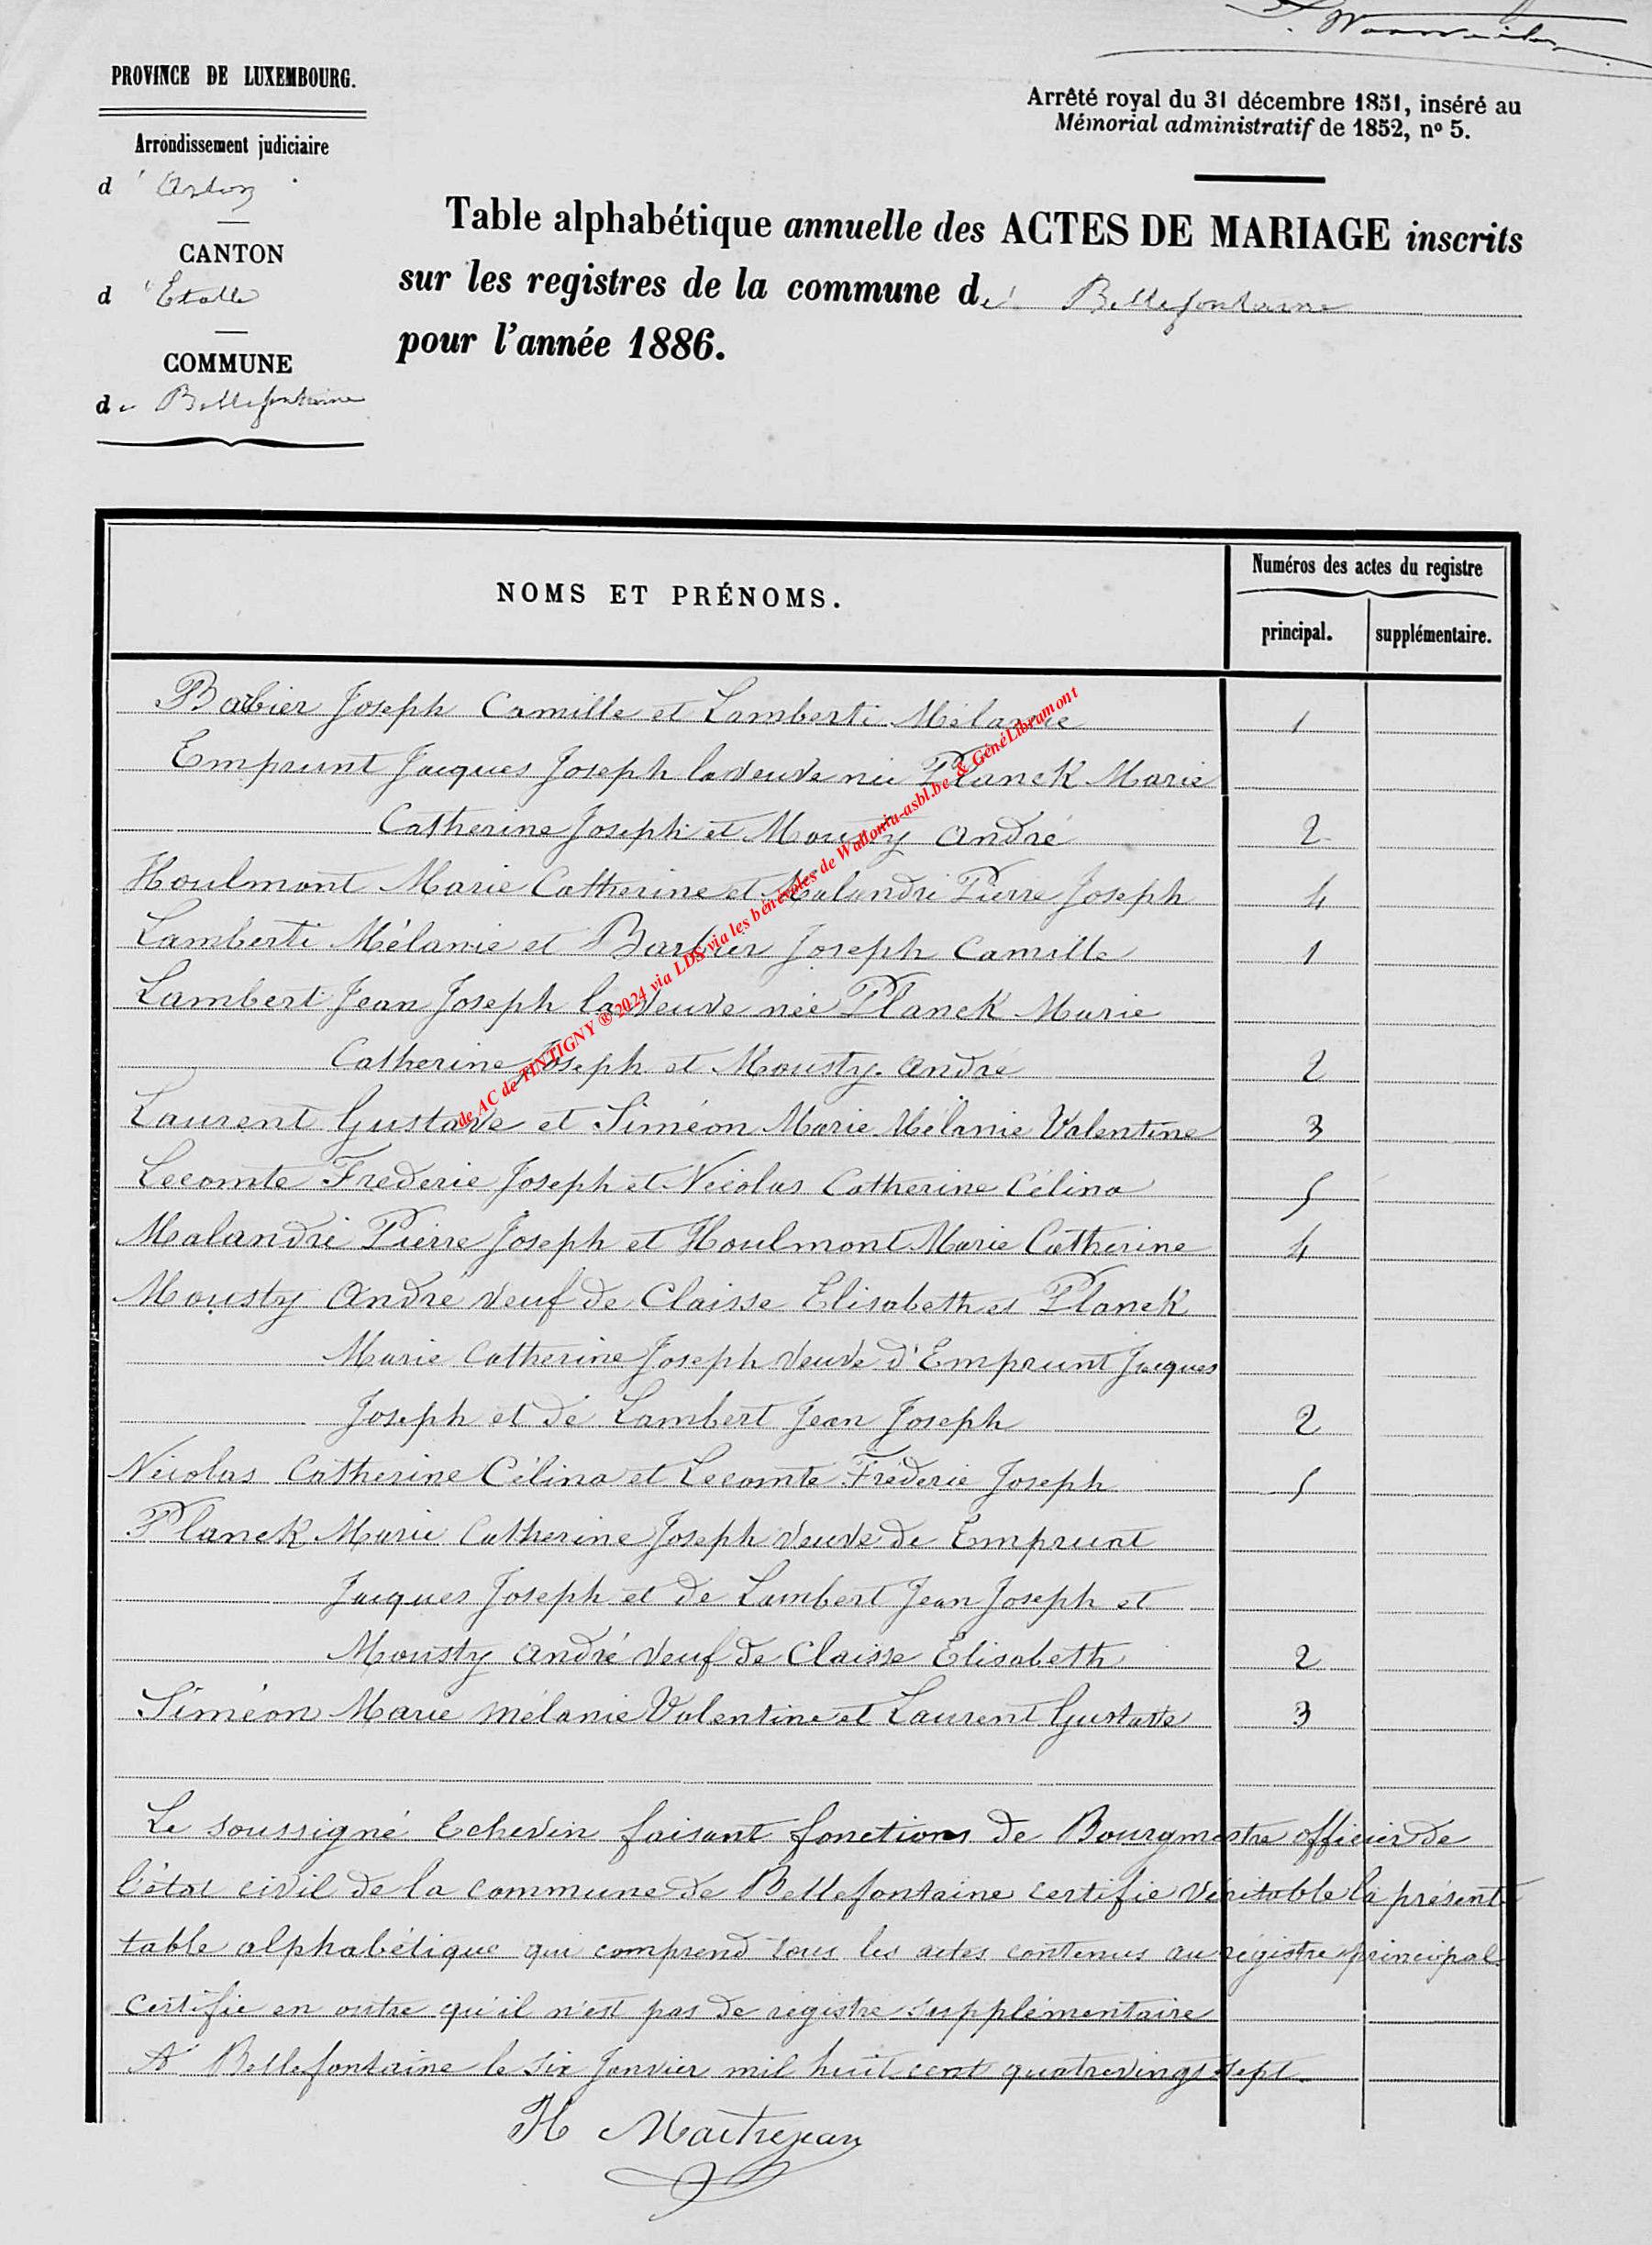 PROVINCE DE LUXEMBOURG.
Arrêté royal du 31 décembre 1851, inséré au
Mémorial administratif de 1852, nº 5.
Arrondissement judiciaire
d'Arlon
CANTON
d'Etalle
COMMUNE
de Bellefontaine
Table alphabétique annuelle des ACTES DE MARIAGE inscrits
sur les registres de la commune de Bellefontaine
pour l'année 1886.
NOMS ET PRÉNOMS.
Numéros des actes du registre
principal. supplémentaire.
Babier Joseph Camille et Lamberti Mélanie 1
Emprunt Jacques Joseph la veuve née Planck Marie
Catherine Joseph et Mousty André 2
Houlmont Marie Catherine et Malandri Pierre Joseph 4
Lamberti Mélanie et Barbier Joseph Camille 1
Lambert Jean Joseph la veuve née Planck Marie
Catherine Joseph et Mousty André 2
Laurent Gustave et Siméon Marie Mélanie Valentine 3
Lecomte Frederic Joseph et Nicolas Catherine Célina 5
Malandri Pierre Joseph et Houlmont Marie Catherine 4
Mousty André veuf de Claisse Elisabeth et Planck
Marie Catherine Joseph veuve d'Emprunt Jacques
Joseph et de Lambert Jean Joseph 2
Nicolas Catherine Célina et Lecomte Fréderic Joseph 5
Planck Marie Catherine Joseph veuve de Emprunt
Jacques Joseph et de Lambert Jean Joseph et
Mousty André veuf de Claisse Elisabeth 2
Siméon Marie Mélanie Valentine et Laurent Gustave 3
Le soussigné Echevin faisant fonctions de Bourgmestre officier de
l'état civil de la commune de Bellefontaine certifie véritable la présente
table alphabétique qui comprend tous les actes contenus au régistre principal
certifie en outre qu'il n'est pas de régistre supplémentaire
A Bellefontaine le six Janvier mil huit cent quatrevingt sept.
H Maitrejean
de AC de TINTIGNY ® 2024 via LDS via les bénévoles de Wallonia-asbl.be & GénéLibramont